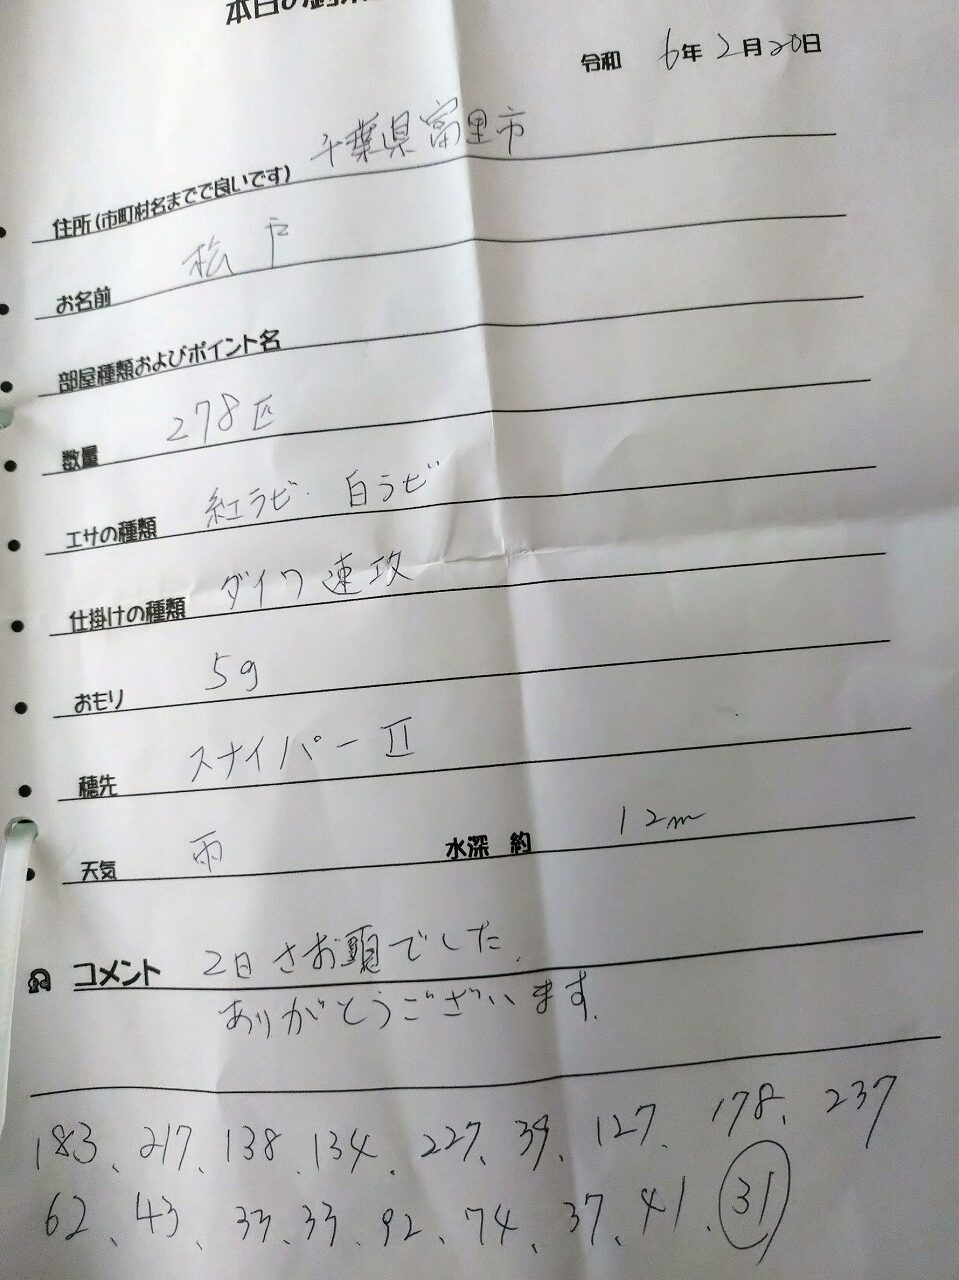 本日の釣果
令和 6年 2月 20日
住所(市町村名までで良いです) 千葉県富里市
お名前 松戸
部屋種類およびポイント名
数量 278匹
エサの種類 紅ラビ. 白ラビ
仕掛けの種類 ダイワ速攻
おもり 5g
穂先 スナイパーⅡ
天気 雨 水深 約 12m
コメント 2日さお頭でした.
ありがとうございます.
183、217、138、134、227、39、127、178、237
62、43、33、33、92、74、37、41、31